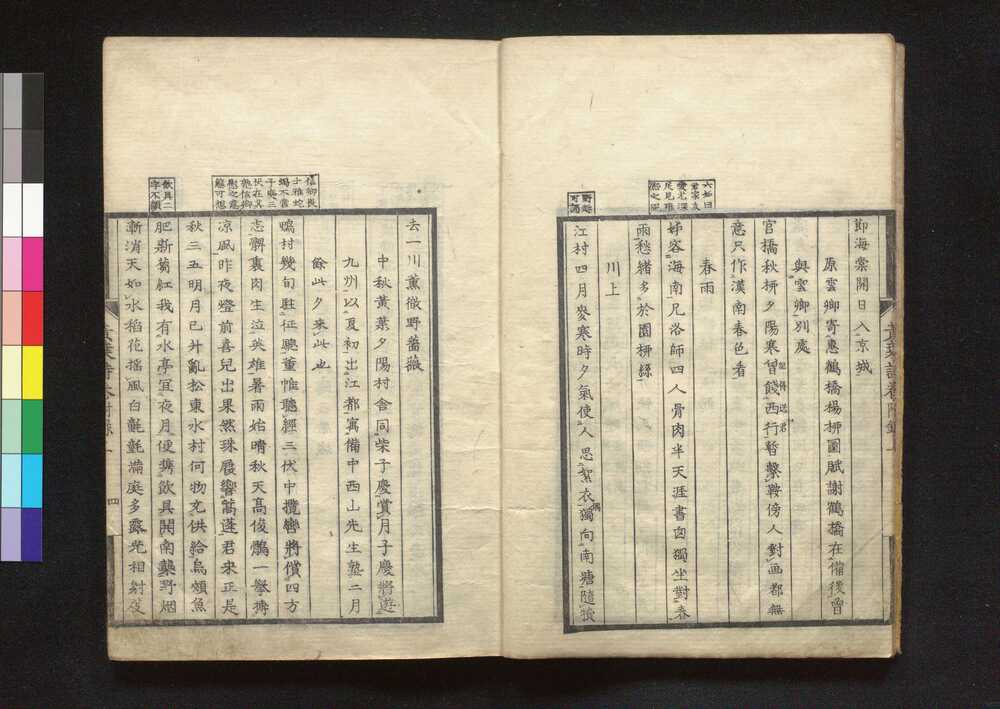 六如曰
節海棠開日入京城
原雲卿寄惠鶴橋楊柳圖賦謝鶴橋在備後曾
與雲卿別處
官橋秋柳夕陽寒曾餞西行暫繫鞍傍人對画都無
意只作漢南春色看
春雨
姊客海南兄洛師四人骨肉半天涯書囱獨坐對春
雨愁緒多於園柳絲
川上
江村四月麥寒時夕氣使人思絮衣獨向南塘隨犢
去一川薰徹野薔薇
中秋黄葉夕陽村舍同柴子慶賞月子慶將遊
九州以夏初出江都寓備中西山先生塾二月
餘此夕来此也
鴨村幾旬駐征驄董帷聽經三伏中攬轡將償四方
志髀裏肉生泣英雄暑雨始晴秋天高俊鶻一擧
凉風昨夜燈前喜兒出果然珠履響蒿蓬君来正是
秋三五明月已升亂松東水村何物充供給烏頰魚
肥新蒭紅我有水亭宜夜月便携飲具開南
野烟
漸消天如水稻花揺風白氈氈滿庭多露光相射夜
飲具二
字不
信卿長
黄葉詩
四